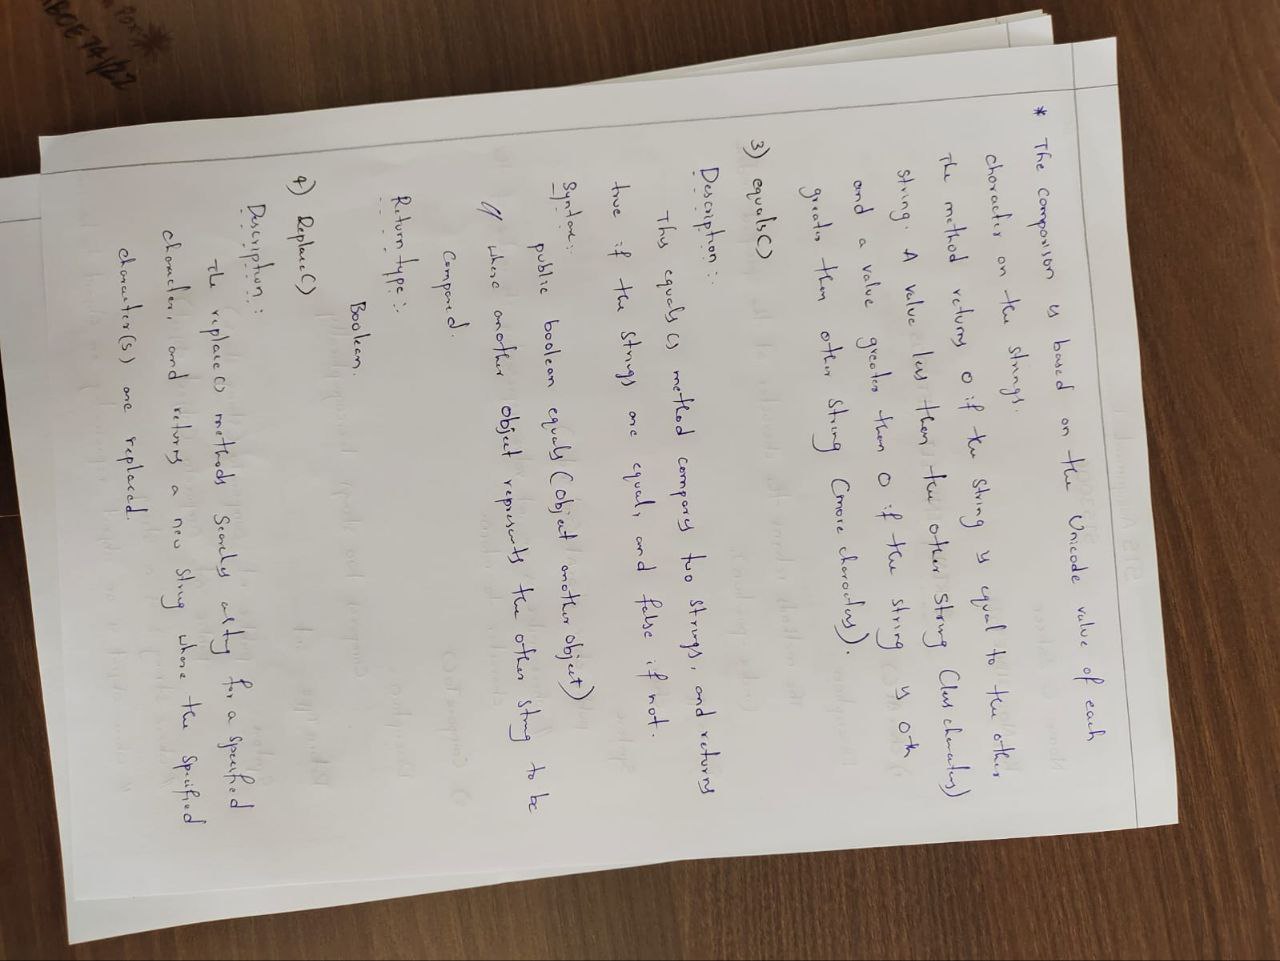 * The comparison is based on the Unicode value of each
character on the strings.
The method returns 0 if the string is equal to the other
string. A value less then the other string (less characters)
and a value greater than 0 if the string is oth
greater then other string (more characters).
3) equals()
Description :
This equals() method compares two strings, and returns
true if the strings are equal, and false if not.
Syntax:
public boolean equals (Object another object)
// where another object represents the other string to be
Compared.
Return type :
Boolean.
4) Replace()
Description :
The replace() methods Searches for a specified
character, and returns a new string where the specified
character(s) are replaced.
BOE 74/22